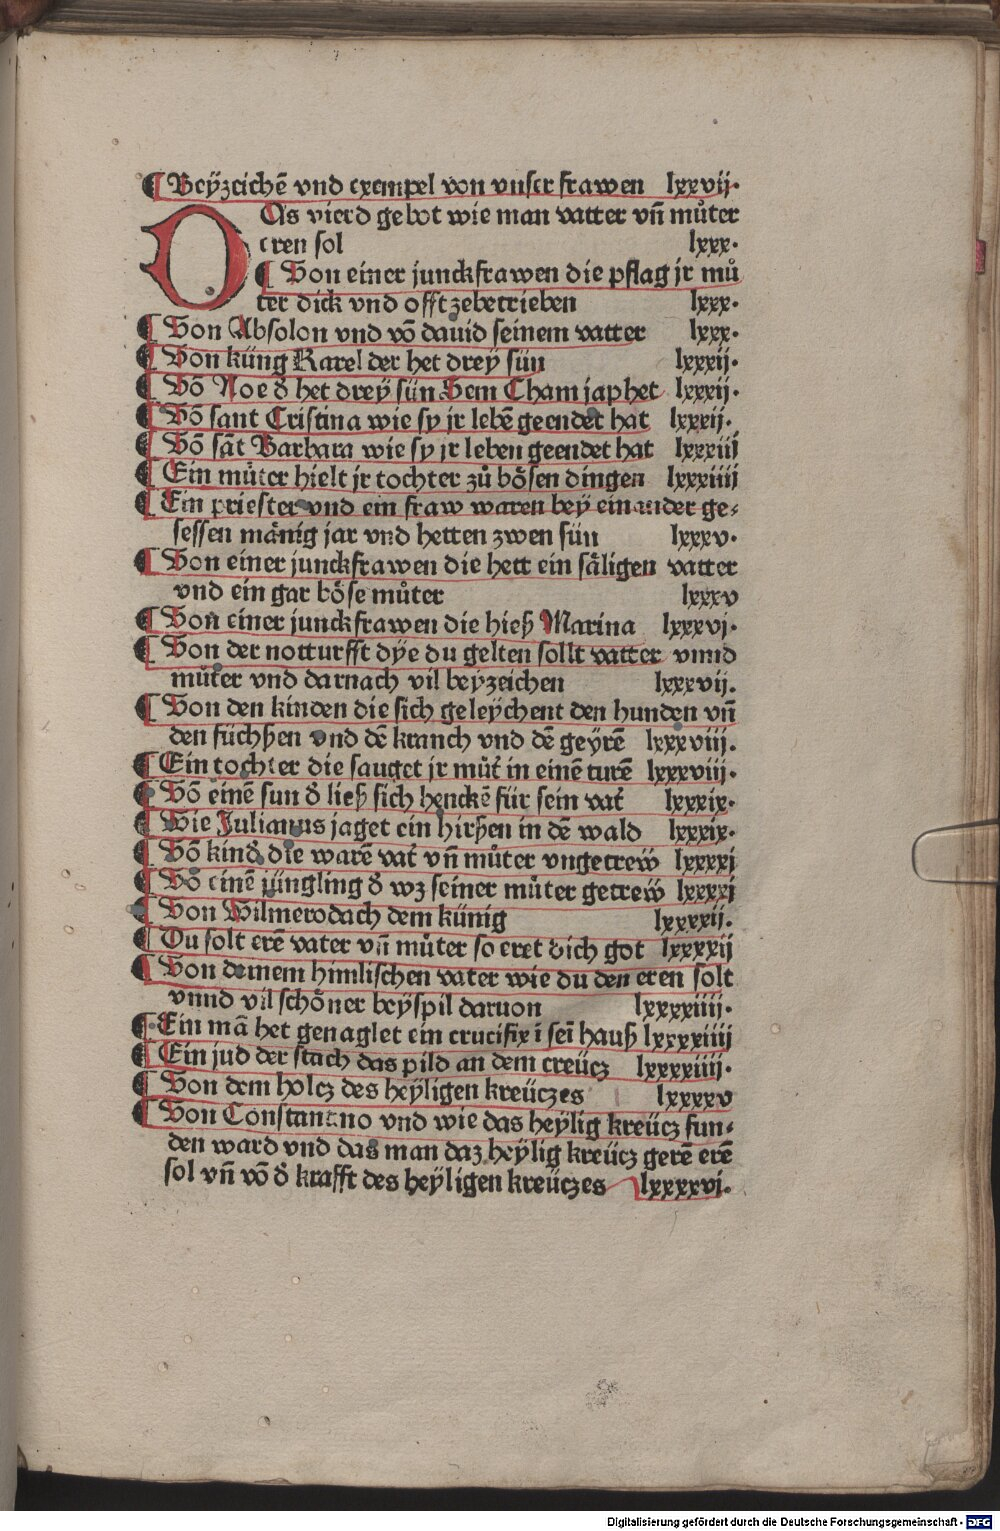 ¶ Beÿzeichē vnd exempel von vnser frawen lxxvii.
DAs vierd gebot wie man vatter vn̄ můter
eren sol lxxx.
¶ Von einer junckfrawen die pflag jr mů
ter dick vnd offt zebetrieben lxxx.
¶ Von Absolon vnd vō dauid seinem vatter lxxx.
¶ Von küng Karel der het dreÿ sün lxxxij.
¶ Vō Noe d̓ het dreÿ sün Sem Cham japhet lxxxij.
¶ Vō sant Cristina wie sy jr lebē geendet hat lxxxij.
¶ Vō sāt Barbara wie sy jr leben geendet hat lxxxiij
¶ Ein můter hielt jr tochter zů bősen dingen lxxxiiij
¶ Ein priester vnd ein fraw waren beÿ einander ge⸗
sessen mänig jar vnd hetten zwen sün lxxxv.
¶ Von einer junckfrawen die hett ein säligen vatter
vnd ein gar böse můter lxxxv
¶ Von einer junckfrawen die hieß Marina lxxxvj.
¶ Von der notturfft dÿe du gelten sollt vatter vnnd
můter vnd darnach vil beyzeichen lxxxvij.
¶ Von den kinden die sich geleÿchent den hunden vn̄
den füchßen vnd dē kranch vnd dē geÿrē lxxxviij.
¶ Ein tochter die sauget jr můt̓ in einē turē lxxxviij.
¶ Vō einē sun d̓ ließ sich henckē für sein vat̓ lxxxix.
¶ Wie Julianus jaget ein hirßen in dē wald lxxxix.
¶ Vō kind̓ die warē vat̓ vn̄ můter vngetreẅ lxxxxj
¶ Vō einē jüngling d̓ wz seiner můter getreẅ lxxxxj
¶ Von Wilmerodach dem künig lxxxxij.
¶ Du solt erē vater vn̄ můter so eret dich got lxxxxij
¶ Von deinem himlischen vater wie du den eren solt
vnnd vil schöner beÿspil daruon lxxxxiiij.
¶ Ein mā het genaglet ein crucifix ī seī hauß lxxxxiiij
¶ Ein jud der stach das pild an dem creücz lxxxxiiij.
¶ Von dem holcz des heÿligen kreüczes lxxxxv
¶ Von Constantino vnd wie das heÿlig kreücz fun⸗
den ward vnd das man daz heÿlig kreücz gerē erē
sol vn̄ vō d̓ krafft des heÿligen kreüczes lxxxxvj.
Digitalisierung gefördert durch die Deutsche Forschungsgemeinschaft - DFG